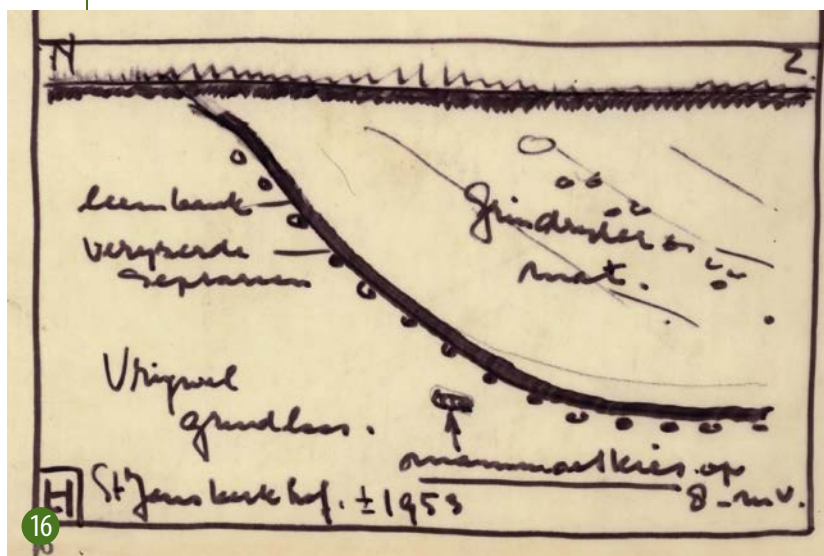 N Z
leembank
verijzerde
septarien
Grindrijker
mat.
Vrijwel
grindloos.
mammoetkies op
8 - m.v.
H St Jans kerkhof. ± 1953
16